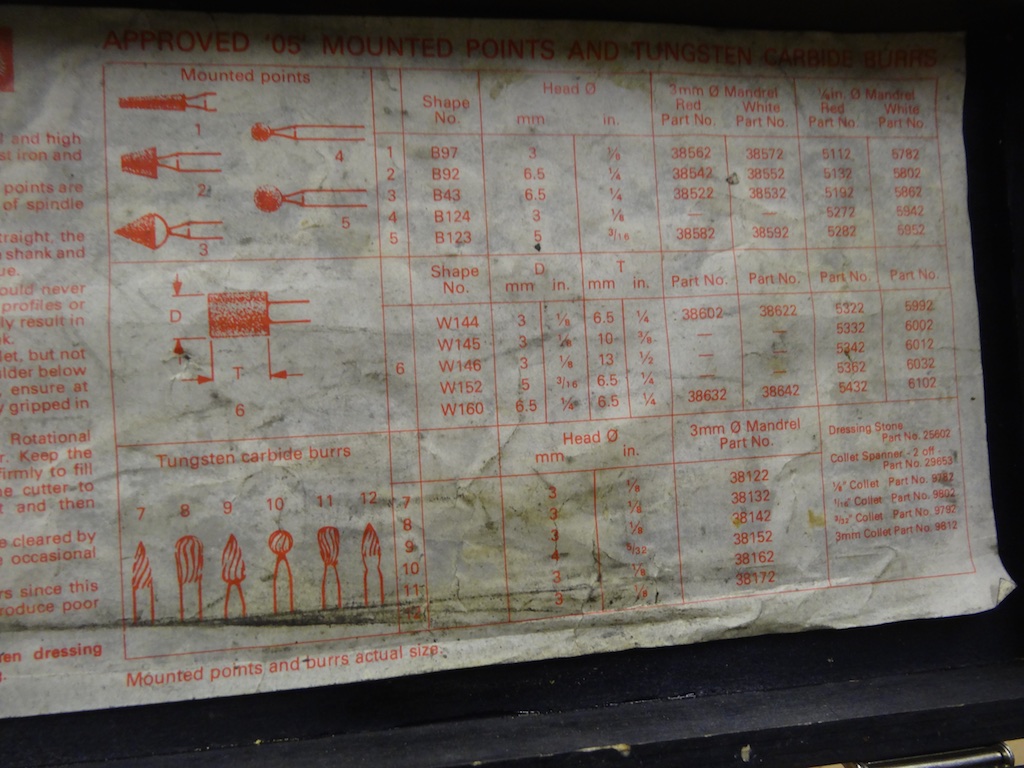 APPROVED '05' MOUNTED POINTS AND TUNGSTEN CARBIDE BURRS
and high
st iron and
points are
of spindle
traight, the
shank and
ould never
profiles or
ly result in
let, but not
older below
ensure at
gripped in
Rotational
Keep the
firmly to fill
cutter to
and then
cleared by
occasional
since this
roduce poor
dressing
Mounted points
1
2
3
4
5
D
T
6
Shape No. Head Ø mm in. 3mm Ø Mandrel Red Part No. White Part No. ¼in. Ø Mandrel Red Part No. White Part No.
1 B97 3 ⅛ 38562 38572 5112 5782
2 B92 6.5 ¼ 38542 38552 5132 5802
3 B43 6.5 ¼ 38522 38532 5192 5862
4 B124 3 ⅛ — — 5272 5942
5 B123 5 3/16 38582 38592 5282 5952
Shape No. D mm in. T mm in. Part No. Part No. Part No. Part No.
6
W144 3 ⅛ 6.5 ¼ 38602 38622 5322 5992
W145 3 ⅛ 10 ⅜ — — 5332 6002
W146 3 ⅛ 13 ½ — — 5342 6012
W152 5 3/16 6.5 ¼ — — 5362 6032
W160 6.5 ¼ 6.5 ¼ 38632 38642 5432 6102
Tungsten carbide burrs
7 8 9 10 11 12
Head Ø mm in. 3mm Ø Mandrel Part No.
7 3 ⅛ 38122
8 3 ⅛ 38132
9 3 ⅛ 38142
10 4 5/32 38152
11 3 ⅛ 38162
3 ⅛ 38172
Dressing Stone
Part No. 25602
Collet Spanner - 2 off
Part No. 29653
⅛" Collet Part No. 9787
Collet Part No. 9802
3/32" Collet Part No. 9792
3mm Collet Part No. 9812
Mounted points and burrs actual size.